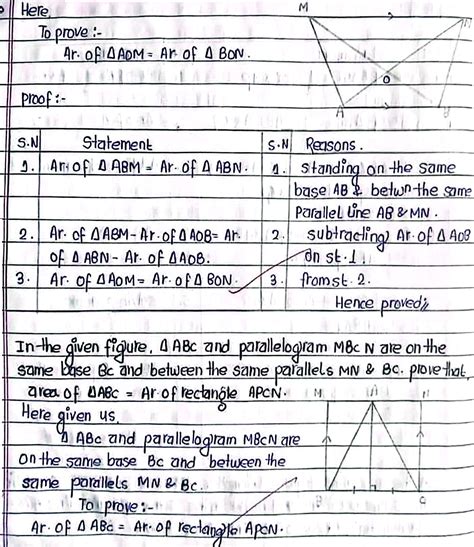 Here,
To prove :-
Ar. of ΔAOM = Ar. of Δ BON.
M
N
O
A
B
Proof :-
S.N Statement S.N Reasons.
1. Ar. of Δ ABM = Ar. of Δ ABN. 1. standing on the same
base AB & betwn the same
Parallel line AB & MN.
2. Ar. of ΔABM - Ar. of ΔAOB = Ar. 2. subtracting Ar. of Δ AOB
of Δ ABN - Ar. of ΔAOB. on st. 1
3. Ar. of ΔAOM = Ar. of Δ BON. 3. from st. 2.
Hence proved
In the given figure, Δ ABC and parallelogram MBCN are on the
same base BC and between the same parallels MN & BC. prove that,
area of ΔABC = Ar. of rectangle APCN.
M A N
Here given us,
Δ ABC and parallelogram MBCN are
on the same base BC and between the
same parallels MN & BC.
B C
To prove :-
Ar. of Δ ABC = Ar. of rectangle APCN.